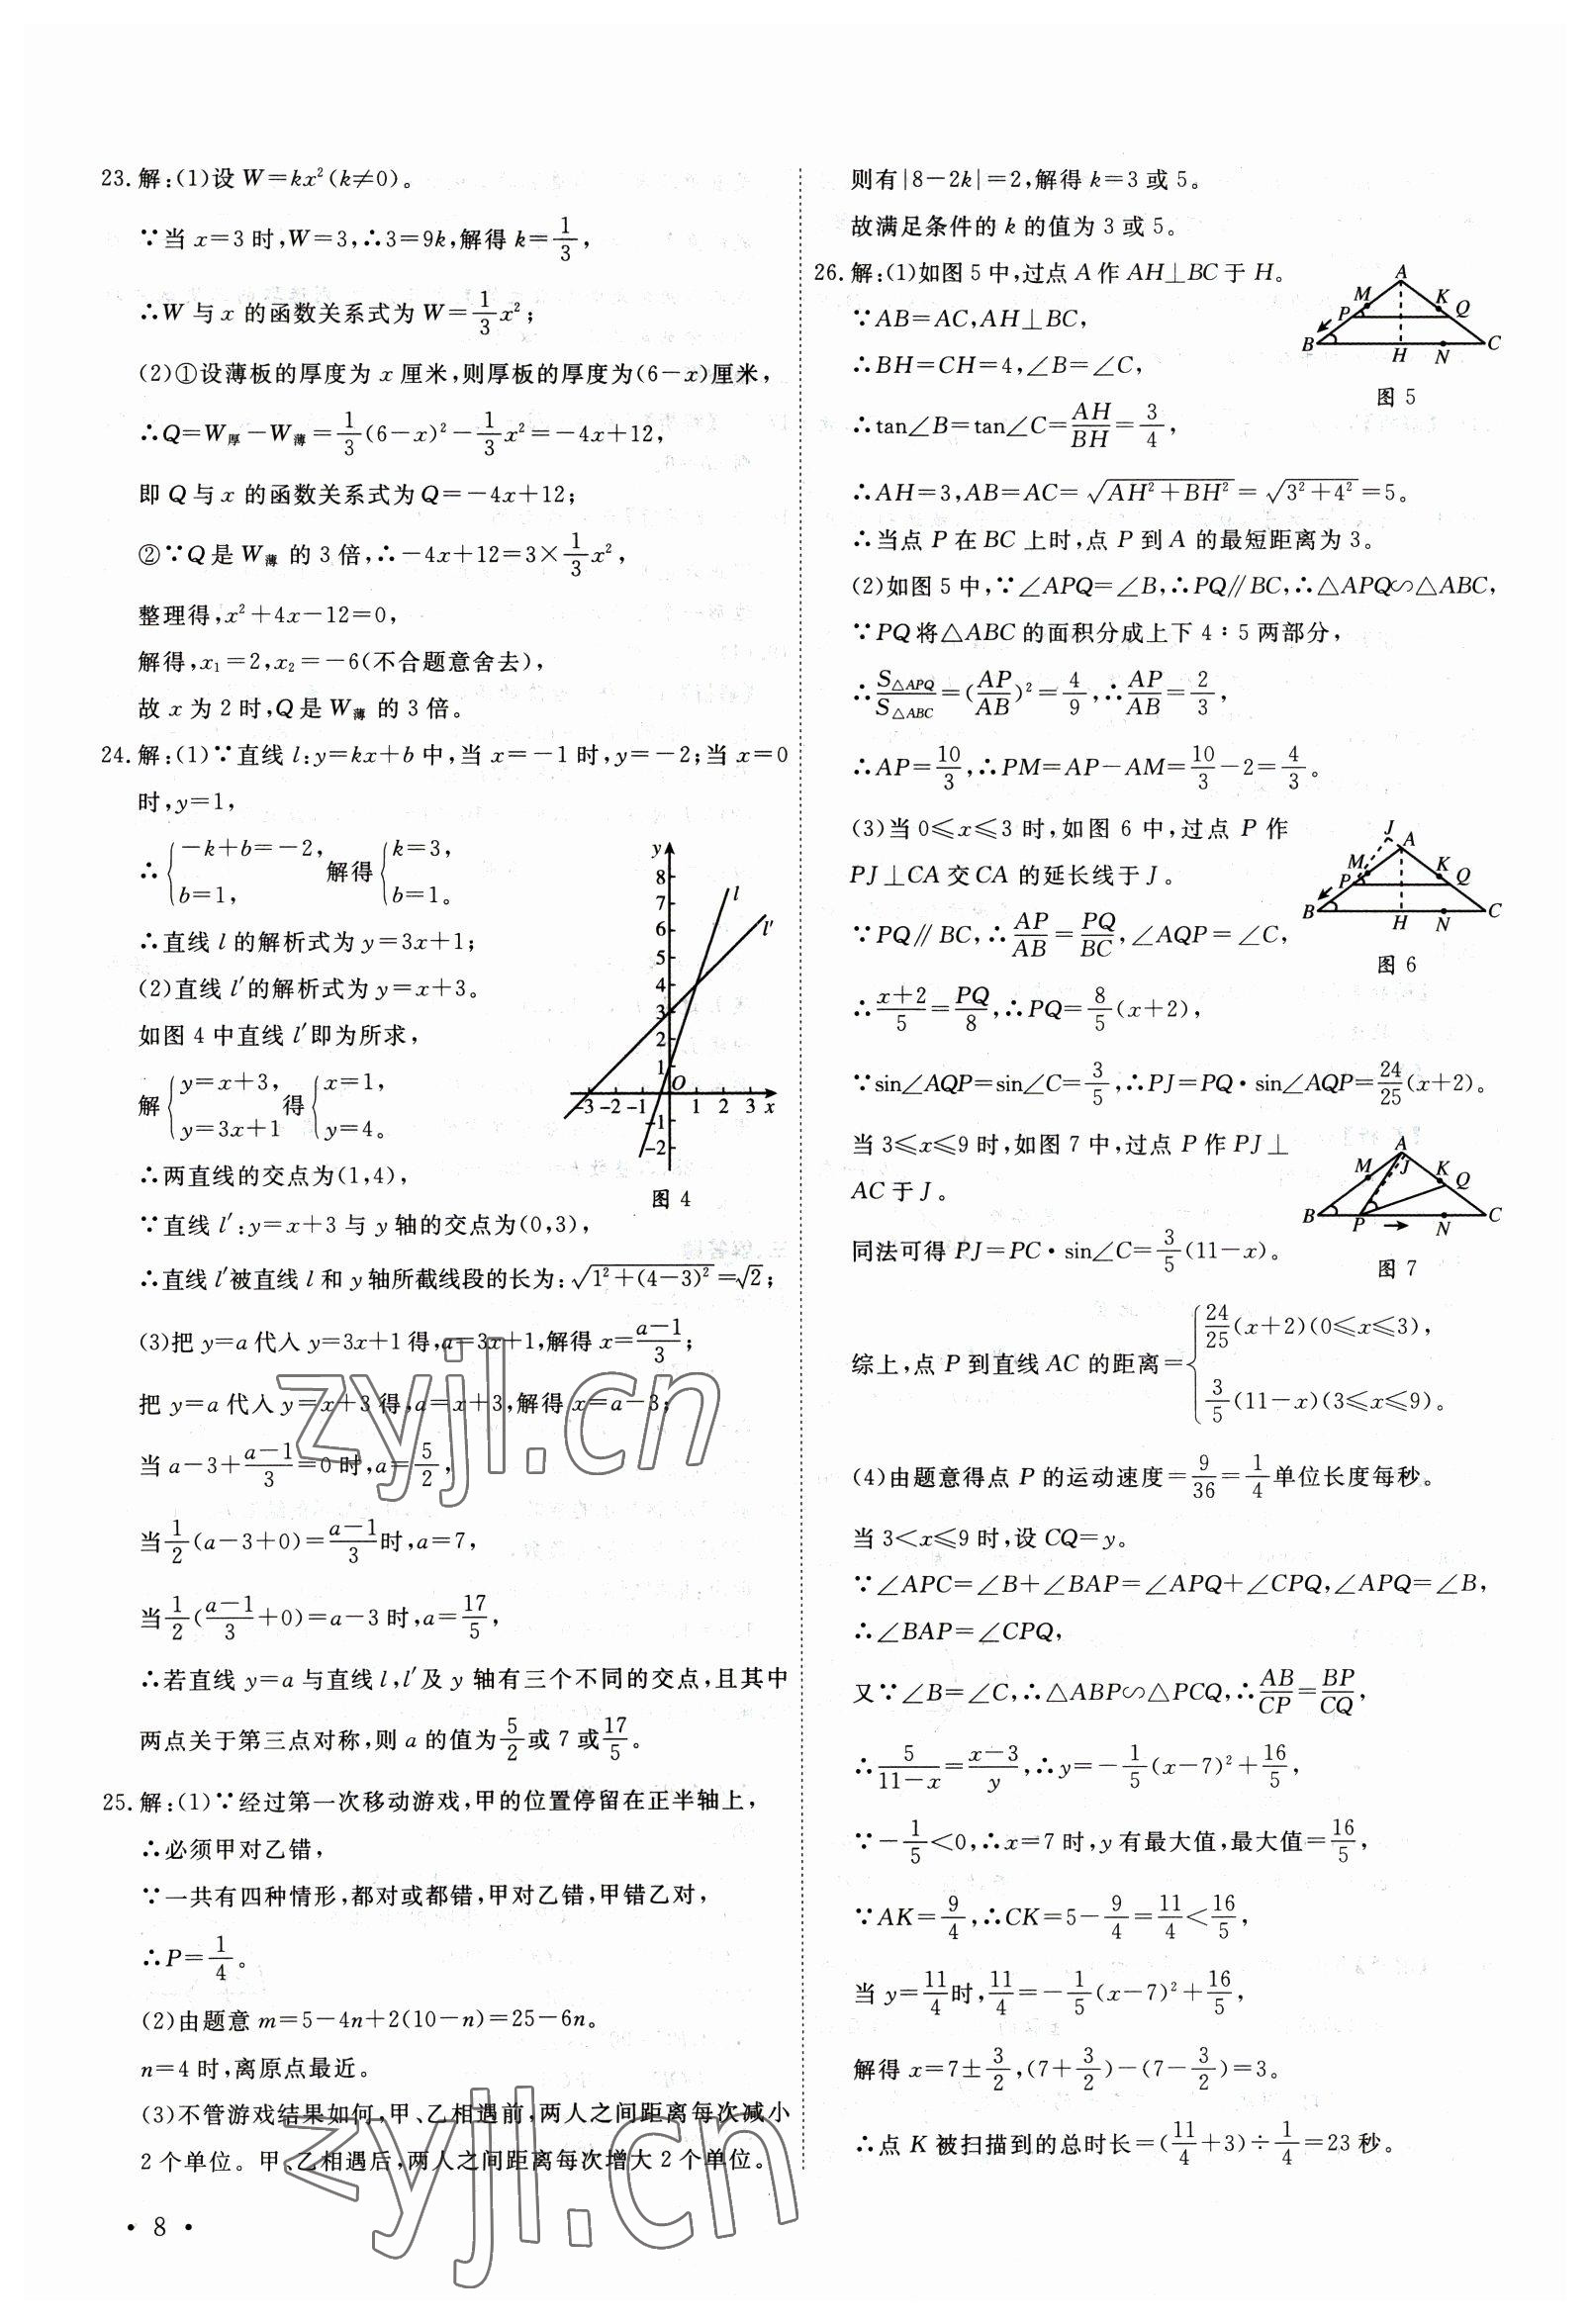 23. 解:(1)设 W=kx²(k≠0)。
∵当 x=3 时,W=3,∴3=9k,解得 k=1/3,
∴W 与 x 的函数关系式为 W=1/3x²;
(2)①设薄板的厚度为 x 厘米,则厚板的厚度为(6-x)厘米,
∴Q=W厚-W薄=1/3(6-x)²-1/3x²=-4x+12,
即 Q 与 x 的函数关系式为 Q=-4x+12;
②∵Q 是 W薄 的 3 倍,∴-4x+12=3×1/3x²,
整理得,x²+4x-12=0,
解得,x₁=2,x₂=-6(不合题意舍去),
故 x 为 2 时,Q 是 W薄 的 3 倍。
24. 解:(1)∵直线 l:y=kx+b 中,当 x=-1 时,y=-2;当 x=0
时,y=1,
∴{-k+b=-2, b=1, 解得{k=3, b=1。
∴直线 l 的解析式为 y=3x+1;
(2)直线 l′的解析式为 y=x+3。
如图 4 中直线 l′即为所求,
解{y=x+3, y=3x+1 得{x=1, y=4。
∴两直线的交点为(1,4),
∵直线 l′:y=x+3 与 y 轴的交点为(0,3),
∴直线 l′被直线 l 和 y 轴所截线段的长为:√(1²+(4-3)²)=√2;
(3)把 y=a 代入 y=3x+1 得,a=3x+1,解得 x=(a-1)/3;
把 y=a 代入 y=x+3 得,a=x+3,解得 x=a-3;
当 a-3+(a-1)/3=0 时,a=5/2,
当1/2(a-3+0)=(a-1)/3时,a=7,
当1/2((a-1)/3+0)=a-3 时,a=17/5,
∴若直线 y=a 与直线 l,l′及 y 轴有三个不同的交点,且其中
两点关于第三点对称,则 a 的值为5/2或 7 或17/5。
y
8
7
6
5
4
3
2
1
O
-3 -2 -1 1 2 3 x
-1
-2
l
l′
图 4
25. 解:(1)∵经过第一次移动游戏,甲的位置停留在正半轴上,
∴必须甲对乙错,
∵一共有四种情形,都对或都错,甲对乙错,甲错乙对,
∴P=1/4。
(2)由题意 m=5-4n+2(10-n)=25-6n。
n=4 时,离原点最近。
(3)不管游戏结果如何,甲、乙相遇前,两人之间距离每次减小
2 个单位。甲、乙相遇后,两人之间距离每次增大 2 个单位。
• 8 •
则有|8-2k|=2,解得 k=3 或 5。
故满足条件的 k 的值为 3 或 5。
26. 解:(1)如图 5 中,过点 A 作 AH⊥BC 于 H。
∵AB=AC,AH⊥BC,
∴BH=CH=4,∠B=∠C,
∴tan∠B=tan∠C=AH/BH=3/4,
A M K P Q B H N C
图 5
∴AH=3,AB=AC=√(AH²+BH²)=√(3²+4²)=5。
∴当点 P 在 BC 上时,点 P 到 A 的最短距离为 3。
(2)如图 5 中,∵∠APQ=∠B,∴PQ∥BC,∴△APQ∽△ABC,
∵PQ 将△ABC 的面积分成上下 4∶5 两部分,
∴S△APQ/S△ABC=(AP/AB)²=4/9,∴AP/AB=2/3,
∴AP=10/3,∴PM=AP-AM=10/3-2=4/3。
(3)当 0≤x≤3 时,如图 6 中,过点 P 作
PJ⊥CA 交 CA 的延长线于 J。
∵PQ∥BC,∴AP/AB=PQ/BC,∠AQP=∠C,
J A M K P Q B H N C
图 6
∴(x+2)/5=PQ/8,∴PQ=8/5(x+2),
∵sin∠AQP=sin∠C=3/5,∴PJ=PQ·sin∠AQP=24/25(x+2)。
当 3≤x≤9 时,如图 7 中,过点 P 作 PJ⊥
AC 于 J。
同法可得 PJ=PC·sin∠C=3/5(11-x)。
A M J K Q B P N C
图 7
综上,点 P 到直线 AC 的距离={24/25(x+2)(0≤x≤3), 3/5(11-x)(3≤x≤9)。
(4)由题意得点 P 的运动速度=9/36=1/4单位长度每秒。
当 3<x≤9 时,设 CQ=y。
∵∠APC=∠B+∠BAP=∠APQ+∠CPQ,∠APQ=∠B,
∴∠BAP=∠CPQ,
又∵∠B=∠C,∴△ABP∽△PCQ,∴AB/CP=BP/CQ,
∴5/(11-x)=(x-3)/y,∴y=-1/5(x-7)²+16/5,
∵-1/5<0,∴x=7 时,y 有最大值,最大值=16/5,
∵AK=9/4,∴CK=5-9/4=11/4<16/5,
当 y=11/4时,11/4=-1/5(x-7)²+16/5,
解得 x=7±3/2,(7+3/2)-(7-3/2)=3。
∴点 K 被扫描到的总时长=(11/4+3)÷1/4=23 秒。
zyjl.cn
zyjl.cn